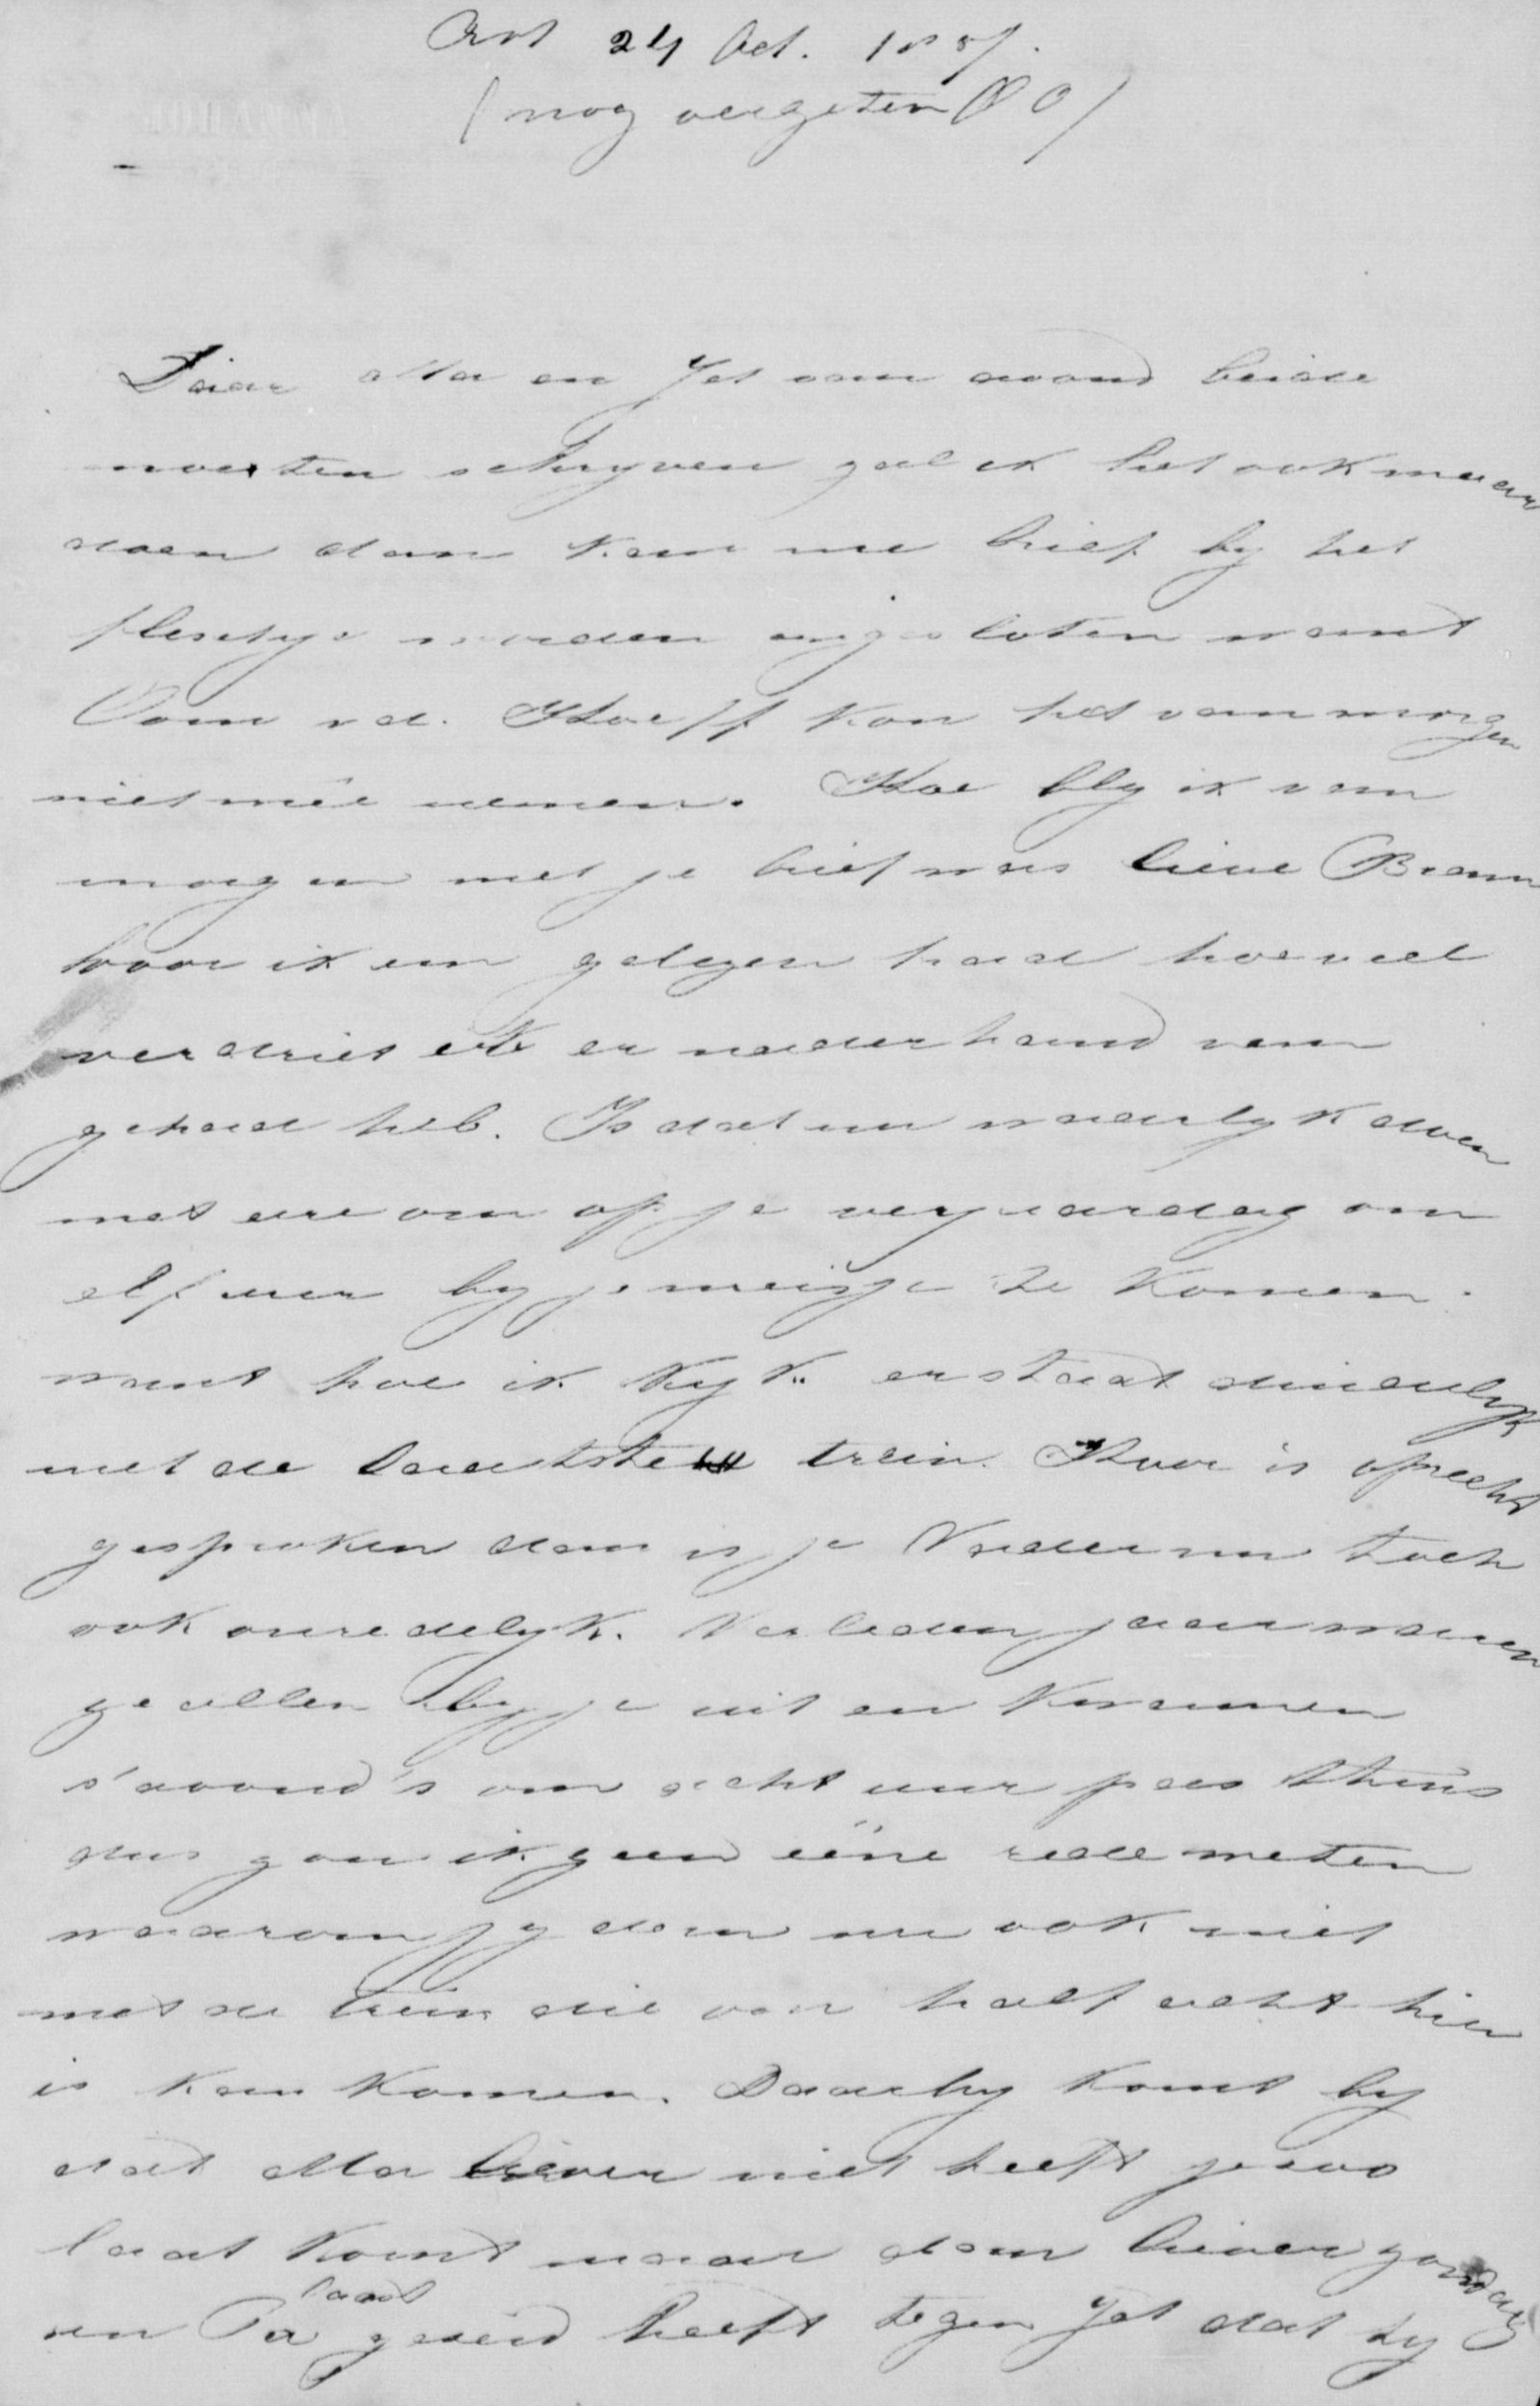 24 Oct. 188
(nog vergeten
Daar Ma en Jet van avond beide
moesten schryven zal ik het ook maar
doen dan kan me brief by het
flesetje worden ingesloten want
Oom v d. Hoeff kon het van morgen
niet mêe nemen. Hoe bly ik van
morgen met je brief was lieve Bram
voor ik em gelezen had hoeveel
verdriet ik er naderhand van
gehad heb. Is dat nu naarlyk doen
met eere om op je verjaardag om
elf uur by je meisje te komen.
want hoe ik kyk er staat duidelyk
met de laatste trein. Hoor is oprecht
gesproken dan is je Vader nu toch
ook onredelyk. Verleden jaar waren
ze allen by je uit en kwamen
s'avond's om acht uur pas thuis
dus zou ik geen eéne rede weten
waarom jy dan nu ook niet
met de trein die om half acht hier
is kan komen. Daarby komt by
dat Ma liever niet heeft je zoo
laat komt maar dan liever zondag
en Pa laatst gezeid heeft tegen Jet dat hy